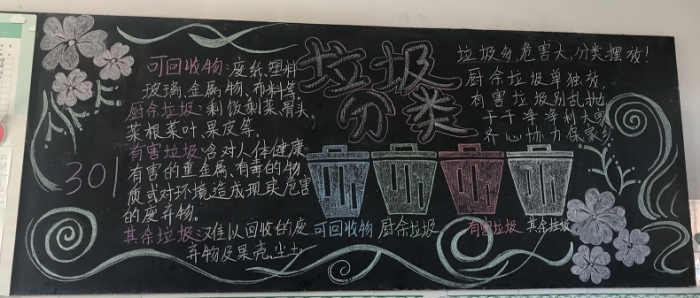 可回收物:废纸、塑料
玻璃、金属物、布料等
厨余垃圾:剩饭剩菜、骨头、
菜根菜叶、果皮等.
有害垃圾:含对人体健康
有害的重金属、有毒的物
质或对环境造成现实危害
的废弃物。
其余垃圾:难以回收的废
弃物及果壳、尘土
301
垃圾
分类
垃圾多,危害大,分类摆放!
厨余垃圾单独放,
有害垃圾别乱抛
干干净净利大家
齐心协力保家乡
可回收物 厨余垃圾 有害垃圾 其余垃圾